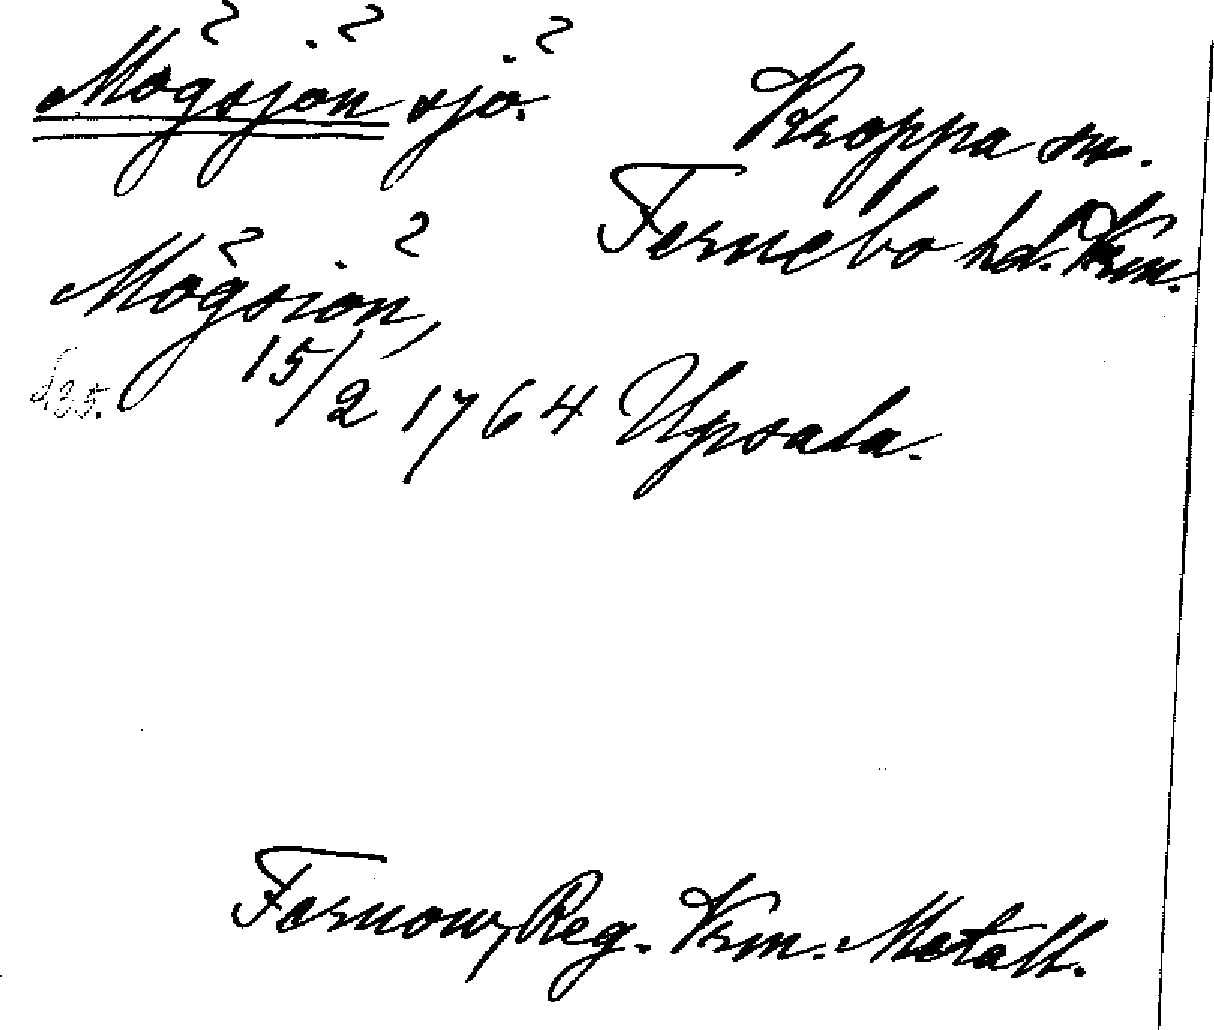 Mögsjön sjö.
Kroppa sn.
Fernebo hd. Vrm.
Mögsiön,
15/2 1764 Upsala.
Fernow, Reg. Vrm. Metall.